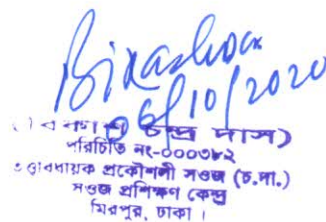 Bikashdas
06/10/2020
(বিকাশ চন্দ্র দাস)
পরিচিতি নং-০০০৩৮২
তত্ত্বাবধায়ক প্রকৌশলী সওজ (চ.দা.)
সওজ প্রশিক্ষণ কেন্দ্র
মিরপুর, ঢাকা।